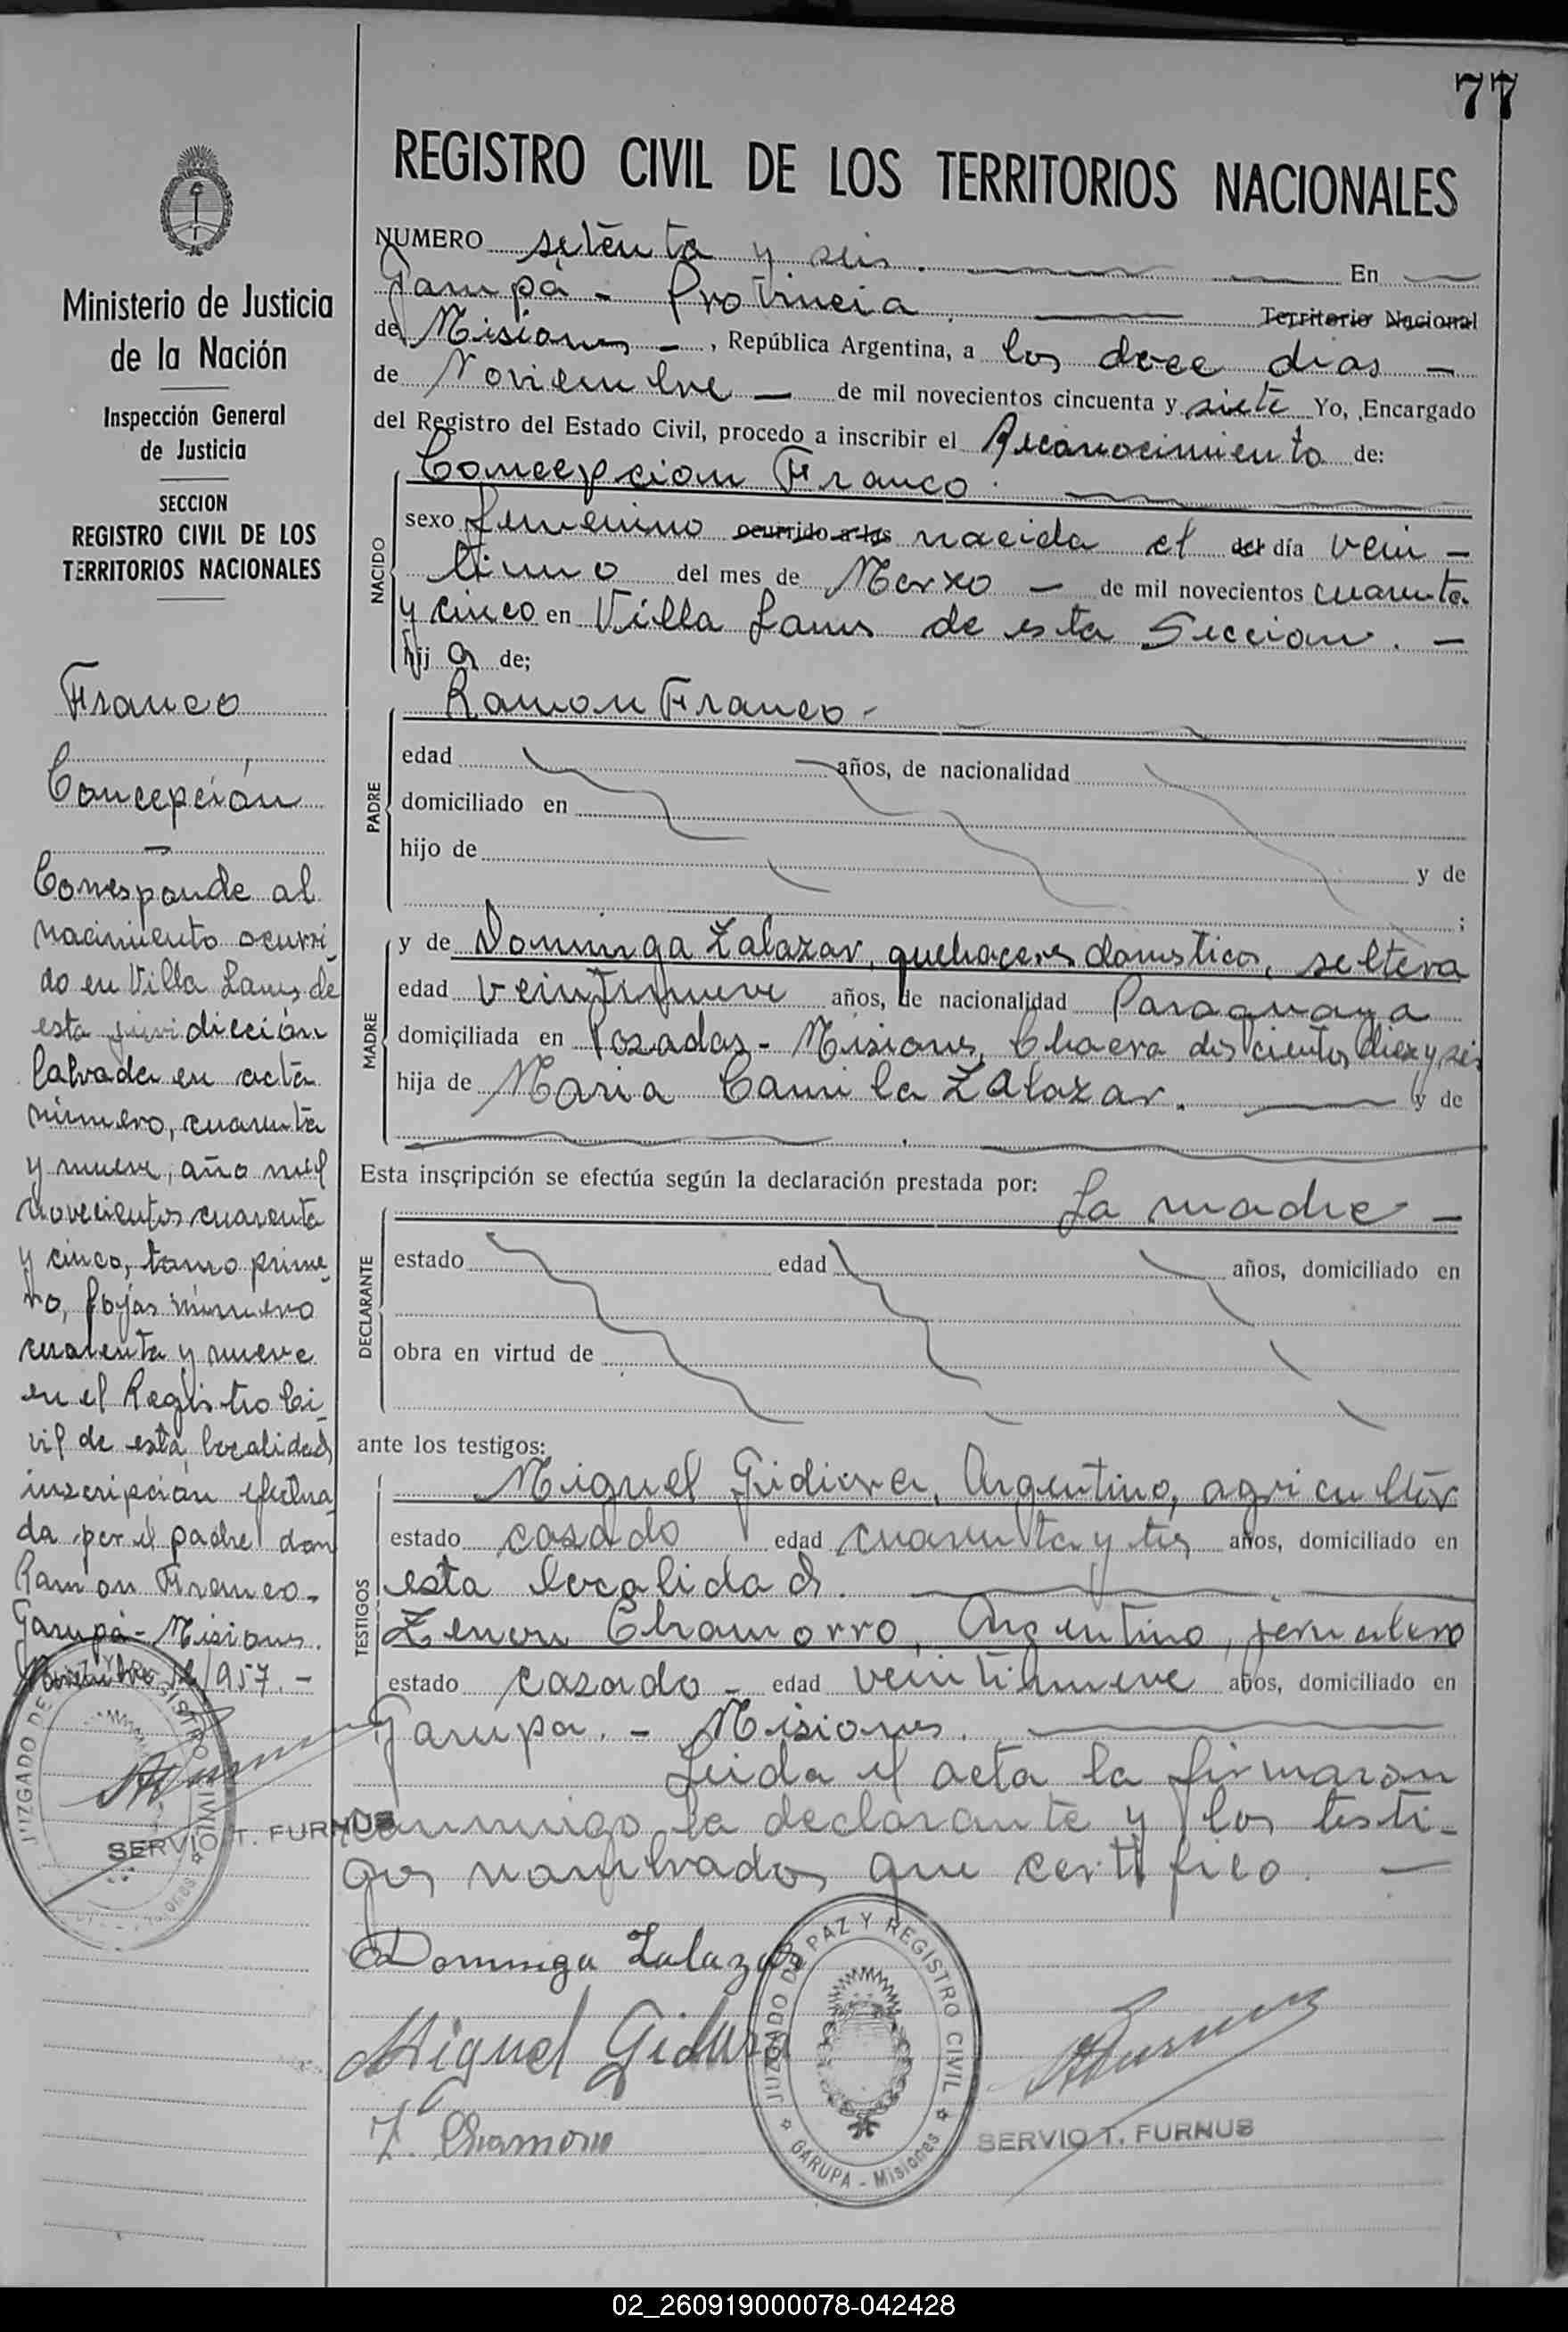 77
REGISTRO CIVIL DE LOS TERRITORIOS NACIONALES
Ministerio de Justicia
de la Nación
Inspección General
de Justicia
SECCION
REGISTRO CIVIL DE LOS
TERRITORIOS NACIONALES
Franco
Concepción
Corresponde al
nacimiento ocurri-
do en Villa Lanus de
esta juridicción
labrada en acta
número, cuarenta
y nueve, año mil
novecientos cuarenta
y cinco, tomo prime-
ro, fojas número
cuarenta y nueve
en el Registro Ci-
vil de esta localidad
inscripción efectua
da por el padre don
Ramon Franco-
Garupá-Misiones.
Noviembre 12/957.-
JUZGADO DE PAZ Y REGISTRO CIVIL
SERVIO T. FURNUS
NUMERO setenta y seis. En
Garupá - Provincia. Territorio Nacional
de Misiones -, República Argentina, a los doce dias -
de Noviembre - de mil novecientos cincuenta y siete Yo, Encargado
del Registro del Estado Civil, procedo a inscribir el Reconocimiento de:
Concepcion Franco.
NACIDO
sexo femenino ocurrido a las nacida el del día vein -
tiuno del mes de Marzo - de mil novecientos cuarenta
y cinco en Villa Lanus de esta Seccion. -
hij a de;
Ramon Franco-
PADRE
edad años, de nacionalidad
domiciliado en
hijo de y de
;
MADRE
y de Dominga Zalazar, quehaceres domesticos, soltera
edad veintinueve años, de nacionalidad Paraguaya
domiciliada en Posadas - Misiones, Chacra doscientos diez y seis
hija de Maria Camila Zalazar. y de
Esta inscripción se efectúa según la declaración prestada por: La madre -
DECLARANTE
estado edad años, domiciliado en
obra en virtud de
ante los testigos:
TESTIGOS
Miguel Gidiura, Argentino, agricultor
estado casado edad cuarenta y tres años, domiciliado en
esta localidad.
Zenon Chamorro, Argentino, jornalero
estado casado - edad veintinueve años, domiciliado en
Garupa. - Misiones.
Leida el acta la firmaron
conmigo la declarante y los testi-
gos nombrados que certifico. -
Dominga Zalazar
Miguel Gidiura
Z. Chamorro
JUZGADO DE PAZ Y REGISTRO CIVIL
GARUPA - Misiones
SERVIO T. FURNUS
02_260919000078-042428